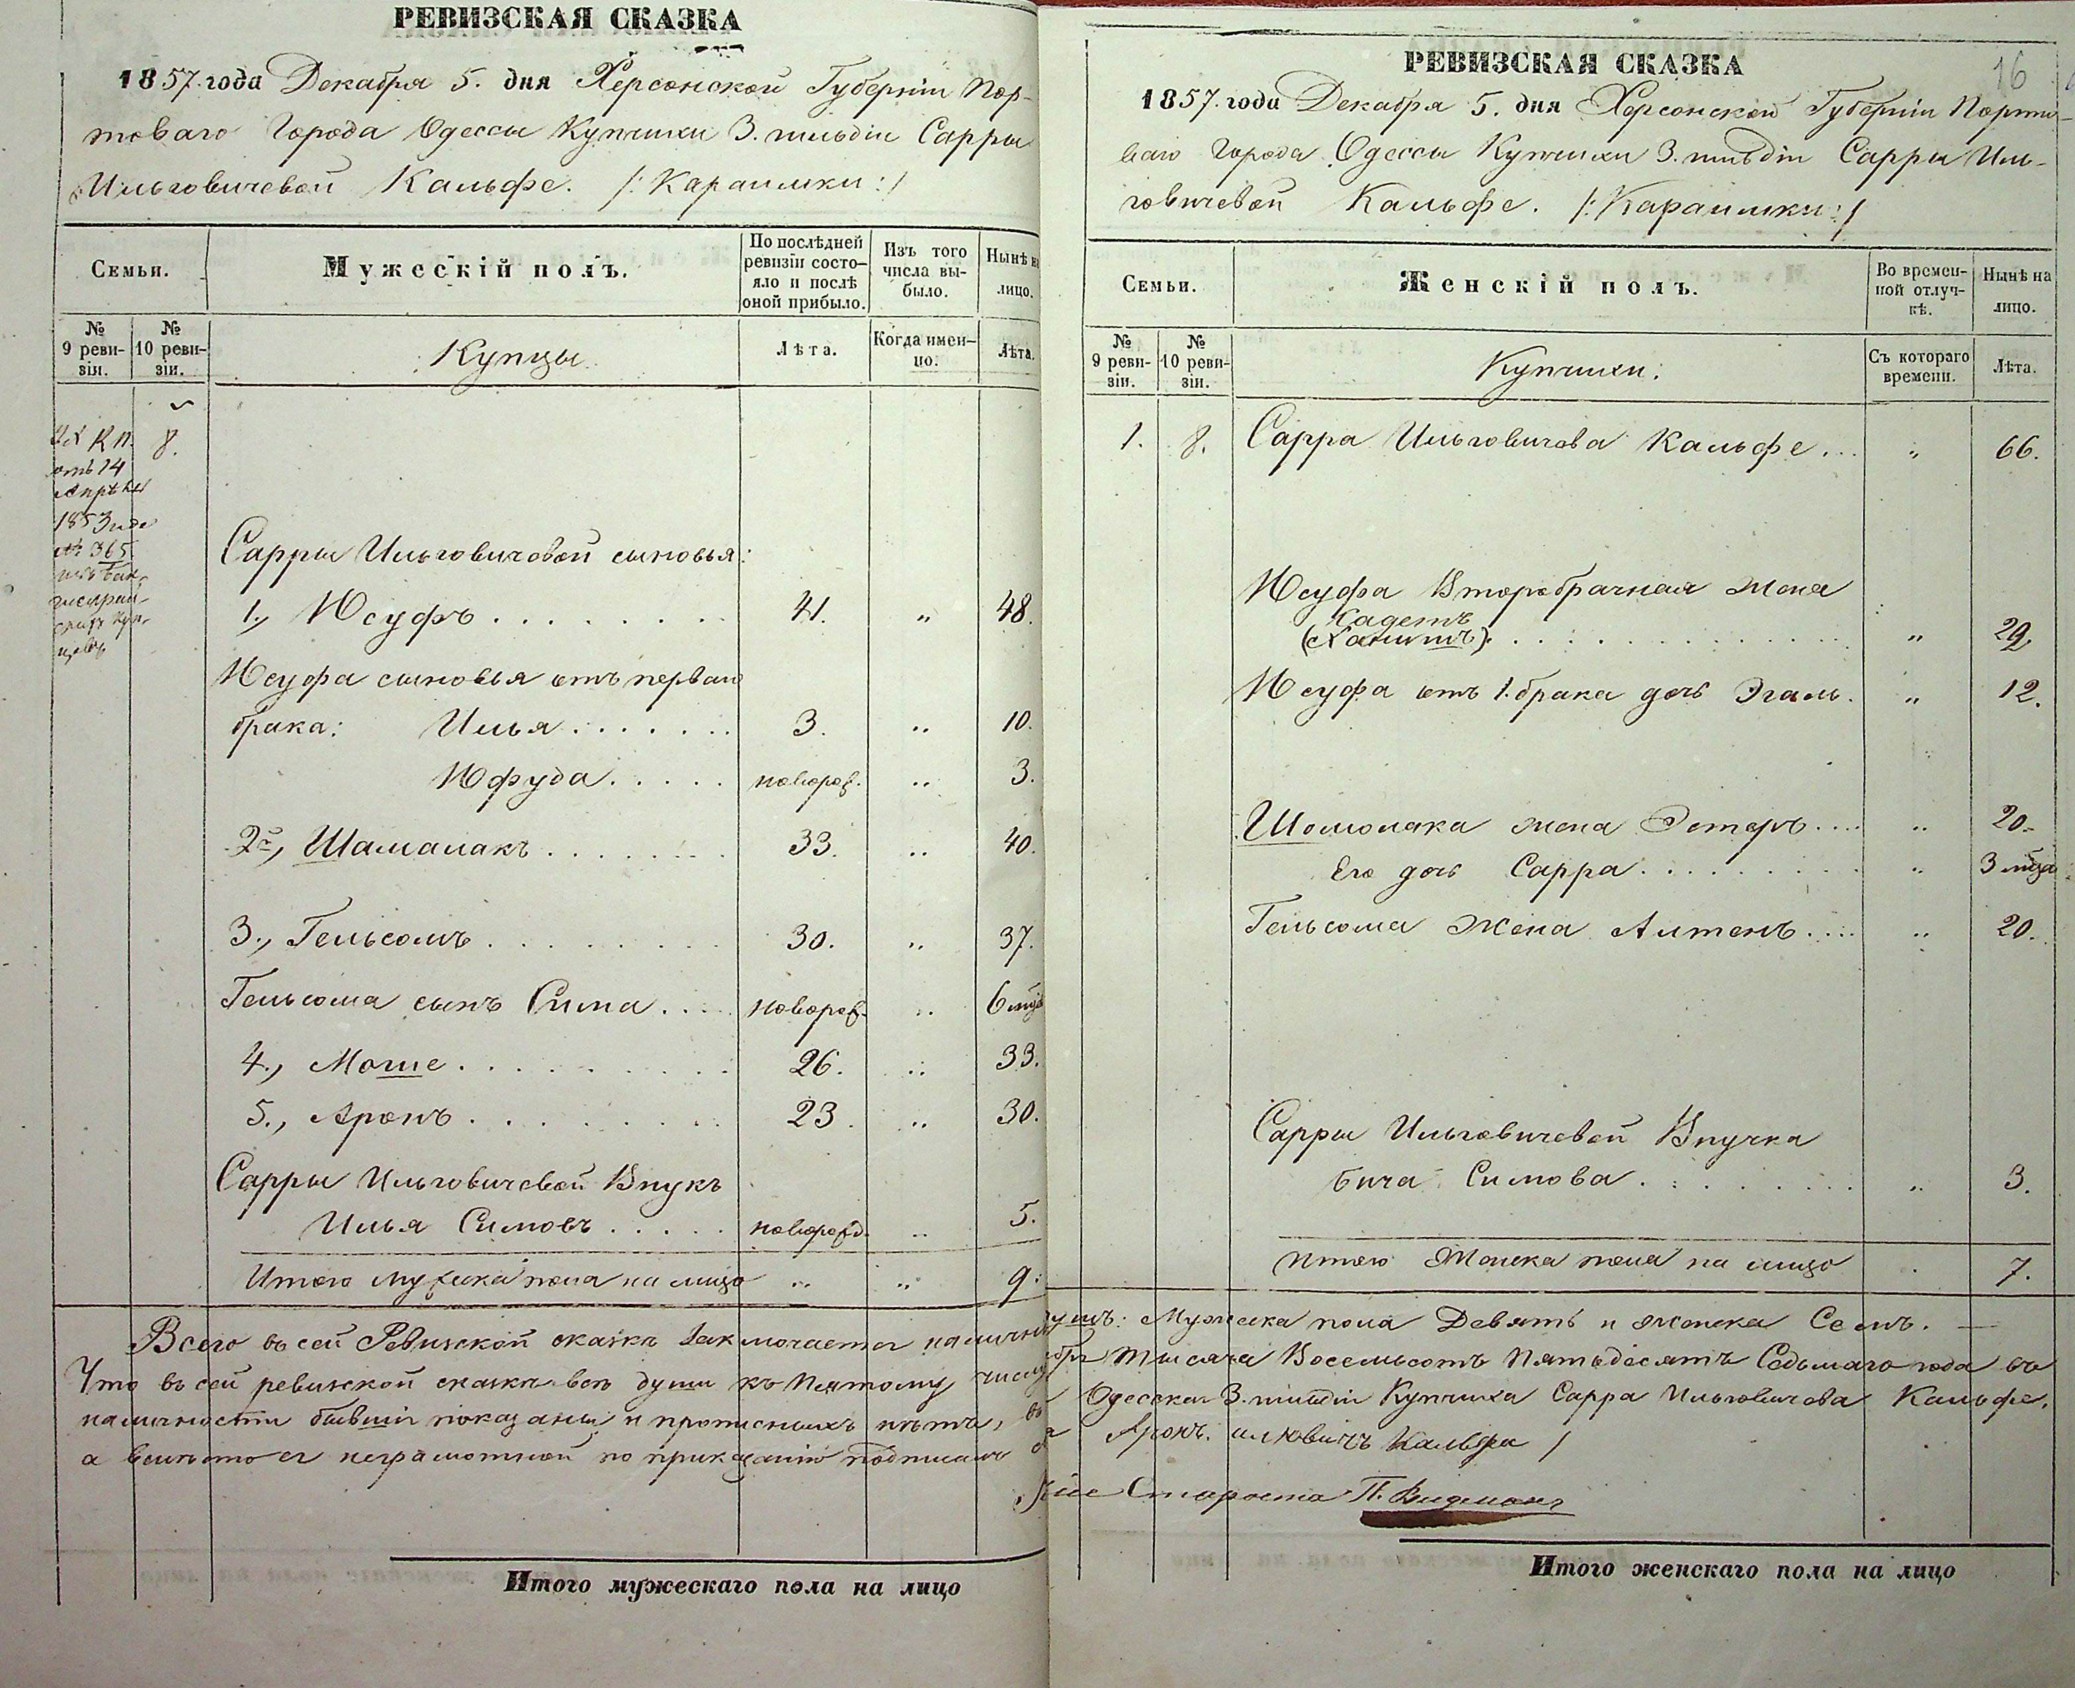 РЕВИЗСКАЯ СКАЗКА
1857 года Декабря 5. дня Херсонской Губерніи Пор-
товаго Города Одессы Купчихи 3. гильдіи Сарры
Ильговичевой Кальфе. /: Караимки :/
Семьи.
Мужескій полъ.
По послѣдней ревизіи состо-яло и послѣ оной прибыло.
Изъ того числа вы-было.
Нынѣ на лицо.
№ 9 реви-зіи.
№ 10 реви-зіи.
Купцы
Лѣта.
Когда имен-но.
Лѣта.
8.
отъ 14
1853 года
№ 365
Сарры Ильговичевой сыновья:
1., Юсуфъ . . . . . . . . 41. " 48.
Юсуфа сыновья отъ перваго
брака: Илья . . . . . . 3. " 10.
Юфуда . . . . . новорож. " 3.
2й, Шамалакъ . . . . . . . 33. " 40.
3., Гельсомъ . . . . . . . . 30. " 37.
Гельсома сынъ Сима . . . . новорож. " 6 мѣс
4., Моше . . . . . . . . . 26. " 33.
5., Аронъ . . . . . . . . 23. " 30.
Сарры Ильговичевой Внукъ
Илья Симовъ . . . . . новорожд. " 5.
Итого мужеска пола на лицо " " 9.
Всего въ сей Ревизской сказкѣ заключается наличныхъ
Что въ сей ревизской сказкѣ всѣ души къ Пятому числу
наличности бывшіе показаны и прописныхъ нѣтъ, въ
а вмѣсто ея неграмотной по приказанію подписалъ
Итого мужескаго пола на лицо
РЕВИЗСКАЯ СКАЗКА
16
1857. года Декабря 5. дня Херсонской Губерніи Порто-
ваго Города Одессы Купчихи 3. гильдіи Сарры Иль-
говичевой Кальфе. /: Караимки :/
Семьи.
Женскій полъ.
Во времен-ной отлуч-кѣ.
Нынѣ на лицо.
№ 9 реви-зіи.
№ 10 реви-зіи.
Купчихи.
Съ котораго времени.
Лѣта.
1. 8. Сарра Ильговичова Кальфе . . . " 66.
Юсуфа Второбрачная жена
Садетъ
(Ханышъ) . . . . . . . . . . " 29.
Юсуфа отъ 1. брака дочь Эгаль. " 12.
Шомолака жена Эстеръ . . . . " 20.
Его дочь Сарра . . . . . . . . . " 3 мѣс
Гельсома Жена Алтенъ . . . . " 20.
Сарры Ильговичевой Внучка
Бича Симова . . . . . . . . " 3.
Итого Женска пола на лицо . 7.
душъ: Мужеска пола Девять и женска Семъ. —
Тысяча Восемьсотъ Пятьдесятъ Седьмаго года въ
Одесская 3. гильдіи Купчиха Сарра Ильговичова Кальфе,
Аронъ. илювичъ Кальфа /
Староста П. Видманъ
Итого женскаго пола на лицо